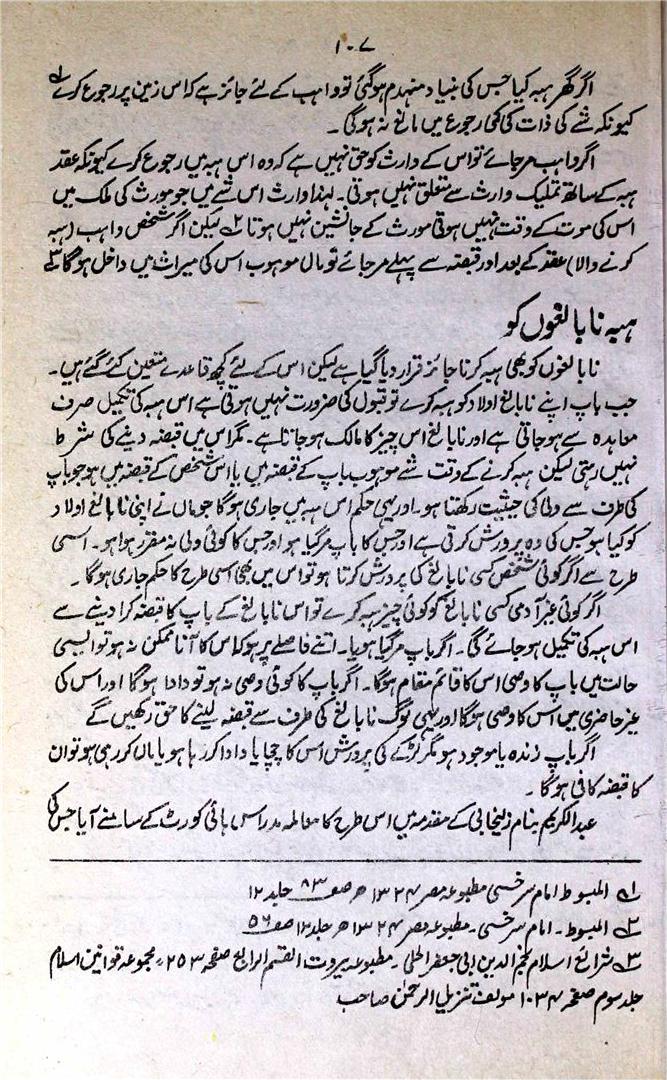 ۱۰۷
اگر گھر ہبہ کیا جس کی بنیاد منہدم ہوگئی تو واہب کے لئے جائز ہے کہ اس زمین پر رجوع کرے ۱؎
کیونکہ شے کی ذات کی کمی رجوع میں مانع نہ ہوگی ۔
اگر واہب مرجائے تو اس کے وارث کو حق نہیں ہے کہ وہ اس ہبہ میں رجوع کرے کیونکہ عقد
ہبہ کے ساتھ تملیک وارث سے متعلق نہیں ہوتی ۔ لہذا وارث اس شے میں جو مورث کی ملک میں
اس کی موت کے وقت نہیں ہوتی مورث کے جانشین نہیں ہوتا ۲؎ لیکن اگر شخص واہب (ہبہ
کرنے والا) عقد کے بعد اور قبضہ سے پہلے مرجائے تو مال موہوب اس کی میراث میں داخل ہوگا ۳؎
ہبہ نابالغوں کو
نابالغوں کو بھی ہبہ کرنا جائز قرار دیا گیا ہے لیکن اس کے لئے کچھ قاعدے متعین کئے گئے ہیں ۔
جب باپ اپنے نابالغ اولاد کو ہبہ کرے تو قبول کی ضرورت نہیں ہوتی ہے اس ہبہ کی تکمیل صرف
معاہدہ سے ہوجاتی ہے اور نابالغ اس چیز کا مالک ہوجاتا ہے ۔ مگر اس میں قبضہ دینے کی شرط
نہیں رہتی لیکن ہبہ کرنے کے وقت شے موہوب باپ کے قبضہ میں یا اس شخص کے قبضہ میں ہو جو باپ
کی طرف سے ولی کی حیثیت رکھتا ہو ۔ اور یہی حکم اس ہبہ میں جاری ہوگا جو ماں نے اپنی نابالغ اولاد
کو کیا ہو جس کی وہ پرورش کرتی ہے اور جس کا باپ مرگیا ہو اور جس کا کوئی ولی نہ مقرر ہوا ہو ۔ اسی
طرح سے اگر کوئی شخص کسی نابالغ کی پرورش کرتا ہو تو اس میں بھی اسی طرح کا حکم جاری ہوگا ۔
اگر کوئی غیر آدمی کسی نابالغ کو کوئی چیز ہبہ کرے تو اس نابالغ کے باپ کا قبضہ کرا دینے سے
اس ہبہ کی تکمیل ہوجائے گی ۔ اگر باپ مرگیا ہو یا ۔ اتنے فاصلے پر ہو کہ اس کا آنا ناممکن نہ ہو تو ایسی
حالت میں باپ کا وصی اس کا قائم مقام ہوگا ۔ اگر باپ کا کوئی وصی نہ ہو تو دادا ہوگا اور اس کی
غیر حاضری میں اس کا وصی ہوگا اور یہی لوگ نابالغ کی طرف سے قبضہ لینے کا حق رکھیں گے
اگر باپ زندہ یا موجود ہو مگر لڑکے کی پرورش اس کا چچا یا دادا کر رہا ہو یا ماں کر رہی ہو تو ان
کا قبضہ کافی ہوگا ۔
عبدالکریم بنام زلیخابی کے مقدمہ میں اس طرح کا معاملہ مدراس ہائی کورٹ کے سامنے آیا جس کی
۱؎ المبسوط امام سرخسی مطبوعہ مصر ۱۳۲۴ھ صفہ ۸۳ جلد ۱۲
۲؎ المبسوط ۔ امام سرخسی ۔ مطبوعہ مصر ۱۳۲۴ھ جلد ۱۲ صفہ ۵۶
۳؎ شرائع اسلام نجم الدین ابی جعفر الحلی ۔ مطبوعہ بیروت القسم الرابع صفحہ ۲۵۳، مجموعہ قوانین اسلام
جلد سوم صفحہ ۱۰۳۴ مولفہ تنزیل الرحمٰن صاحب